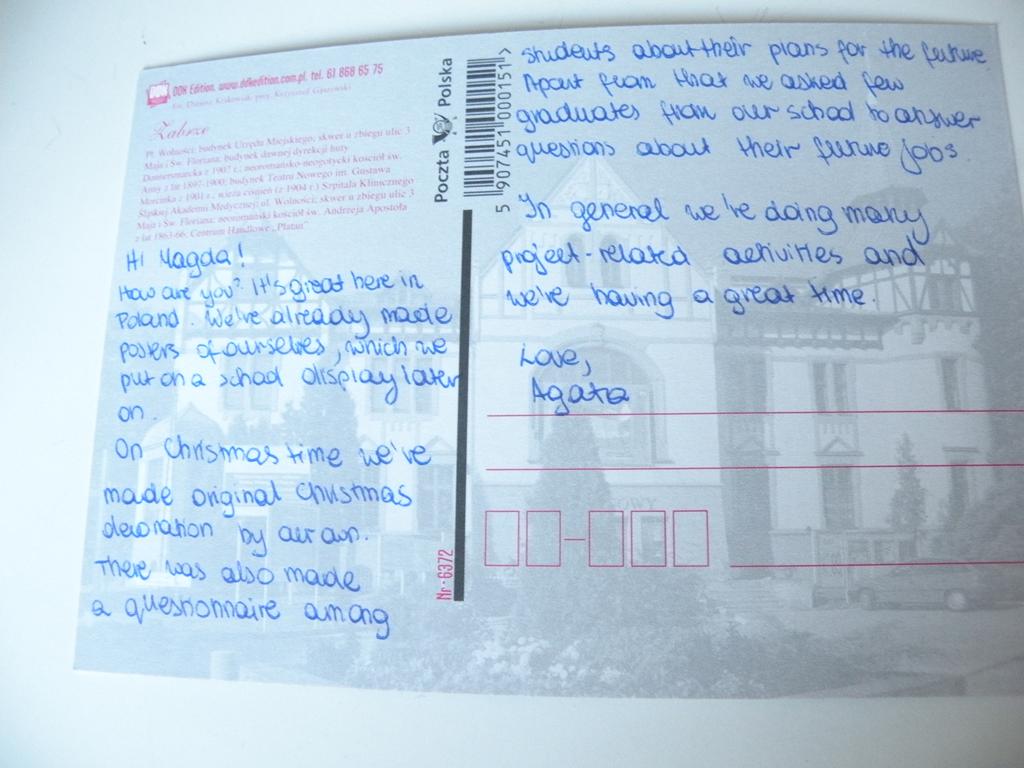 DDK Edition, www.ddkedition.com.pl, tel. 61 868 65 75
fot. Dariusz Krakowiak, proj. Krzysztof Gąszewski
Zabrze
Pl. Wolności; budynek Urzędu Miejskiego; skwer u zbiegu ulic 3
Maja i Św. Floriana; budynek dawnej dyrekcji huty
Donnersmarcka z 1907 r.; neoromańsko-neogotycki kościół św.
Anny z lat 1897-1900; budynek Teatru Nowego im. Gustawa
Morcinka z 1901 r.; wieża ciśnień (z 1904 r.) Szpitala Klinicznego
Śląskiej Akademii Medycznej; ul. Wolności; skwer u zbiegu ulic 3
Maja i Św. Floriana; neoromański kościół św. Andrzeja Apostoła
z lat 1863-66; Centrum Handlowe „Platan”
Hi Magda!
How are you? It's great here in
Poland. We've already made
posters of ourselves, which we
put on a school display later
on.
On Christmas time we've
made original Christmas
decoration by our own.
There was also made
a questionnaire among
Poczta Polska
5 907451 000151 >
Nr-6372
students about their plans for the future.
Apart from that we asked few
graduates from our school to answer
questions about their future jobs.
In general we're doing many
project-related activities and
we're having a great time.
Love,
Agata